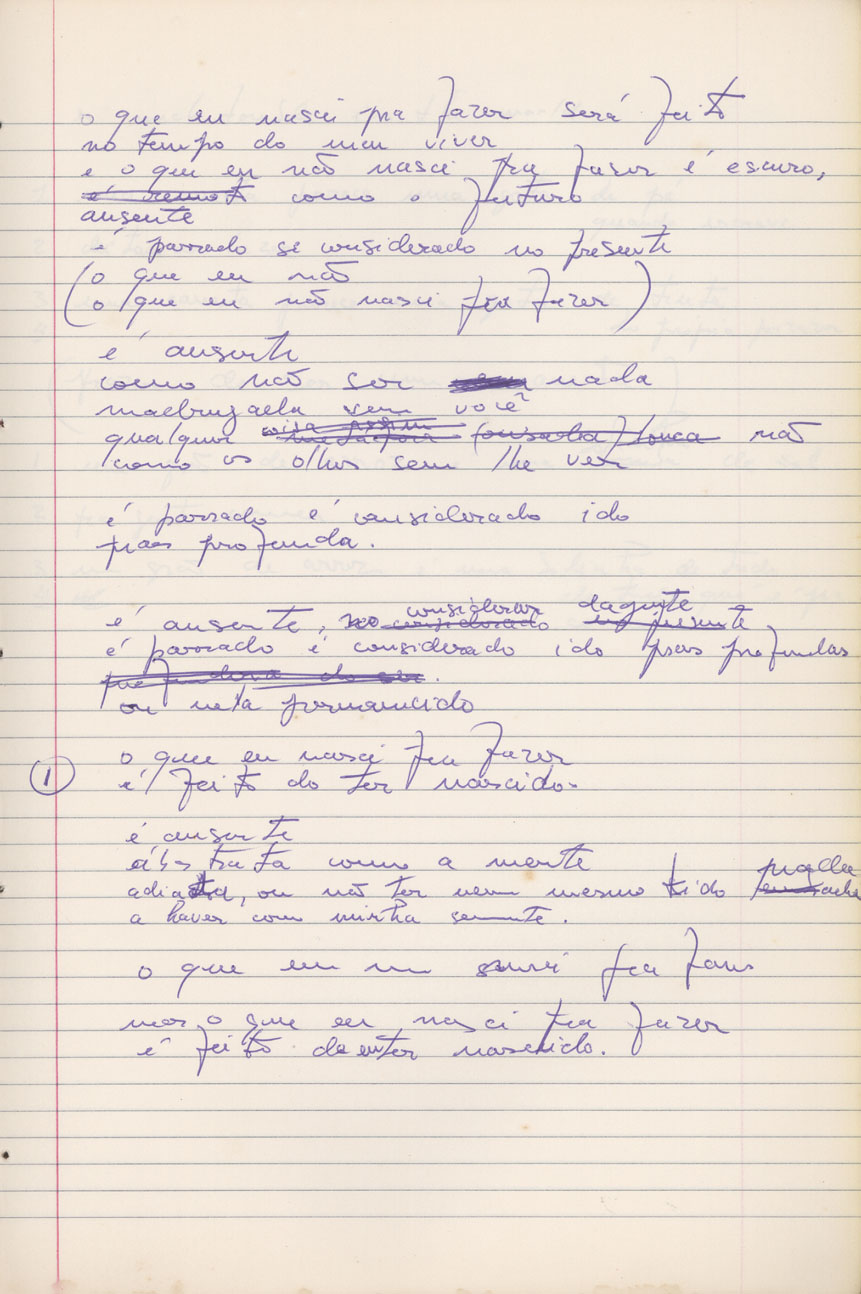 o que eu nasci pra fazer será feito
no tempo do meu viver
e o que eu não nasci pra fazer é escuro,
é remoto como o futuro
ausente
é passado se considerado no presente
(o que eu não
o que eu não nasci pra fazer)
é ausente
como não ser nada
madrugada sem você
qualquer coisa assim metáfora (ousada) louca não
como os olhos sem lhe ver
é passado é considerado ido
pras profunda.
é ausente, no considerado considerar daqui no presente
é passado é considerado ido pras profundas
profundeza do ser.
ou nela permanecido
1 o que eu nasci pra fazer
é feito do ter nascido.
é ausente
abstrata como a mente
adiada, ou não ter nem mesmo tido nada
a haver com minha semente.
o que eu n nasci pra fazer
mas o que eu nasci pra fazer
é feito de eu ter nascido.